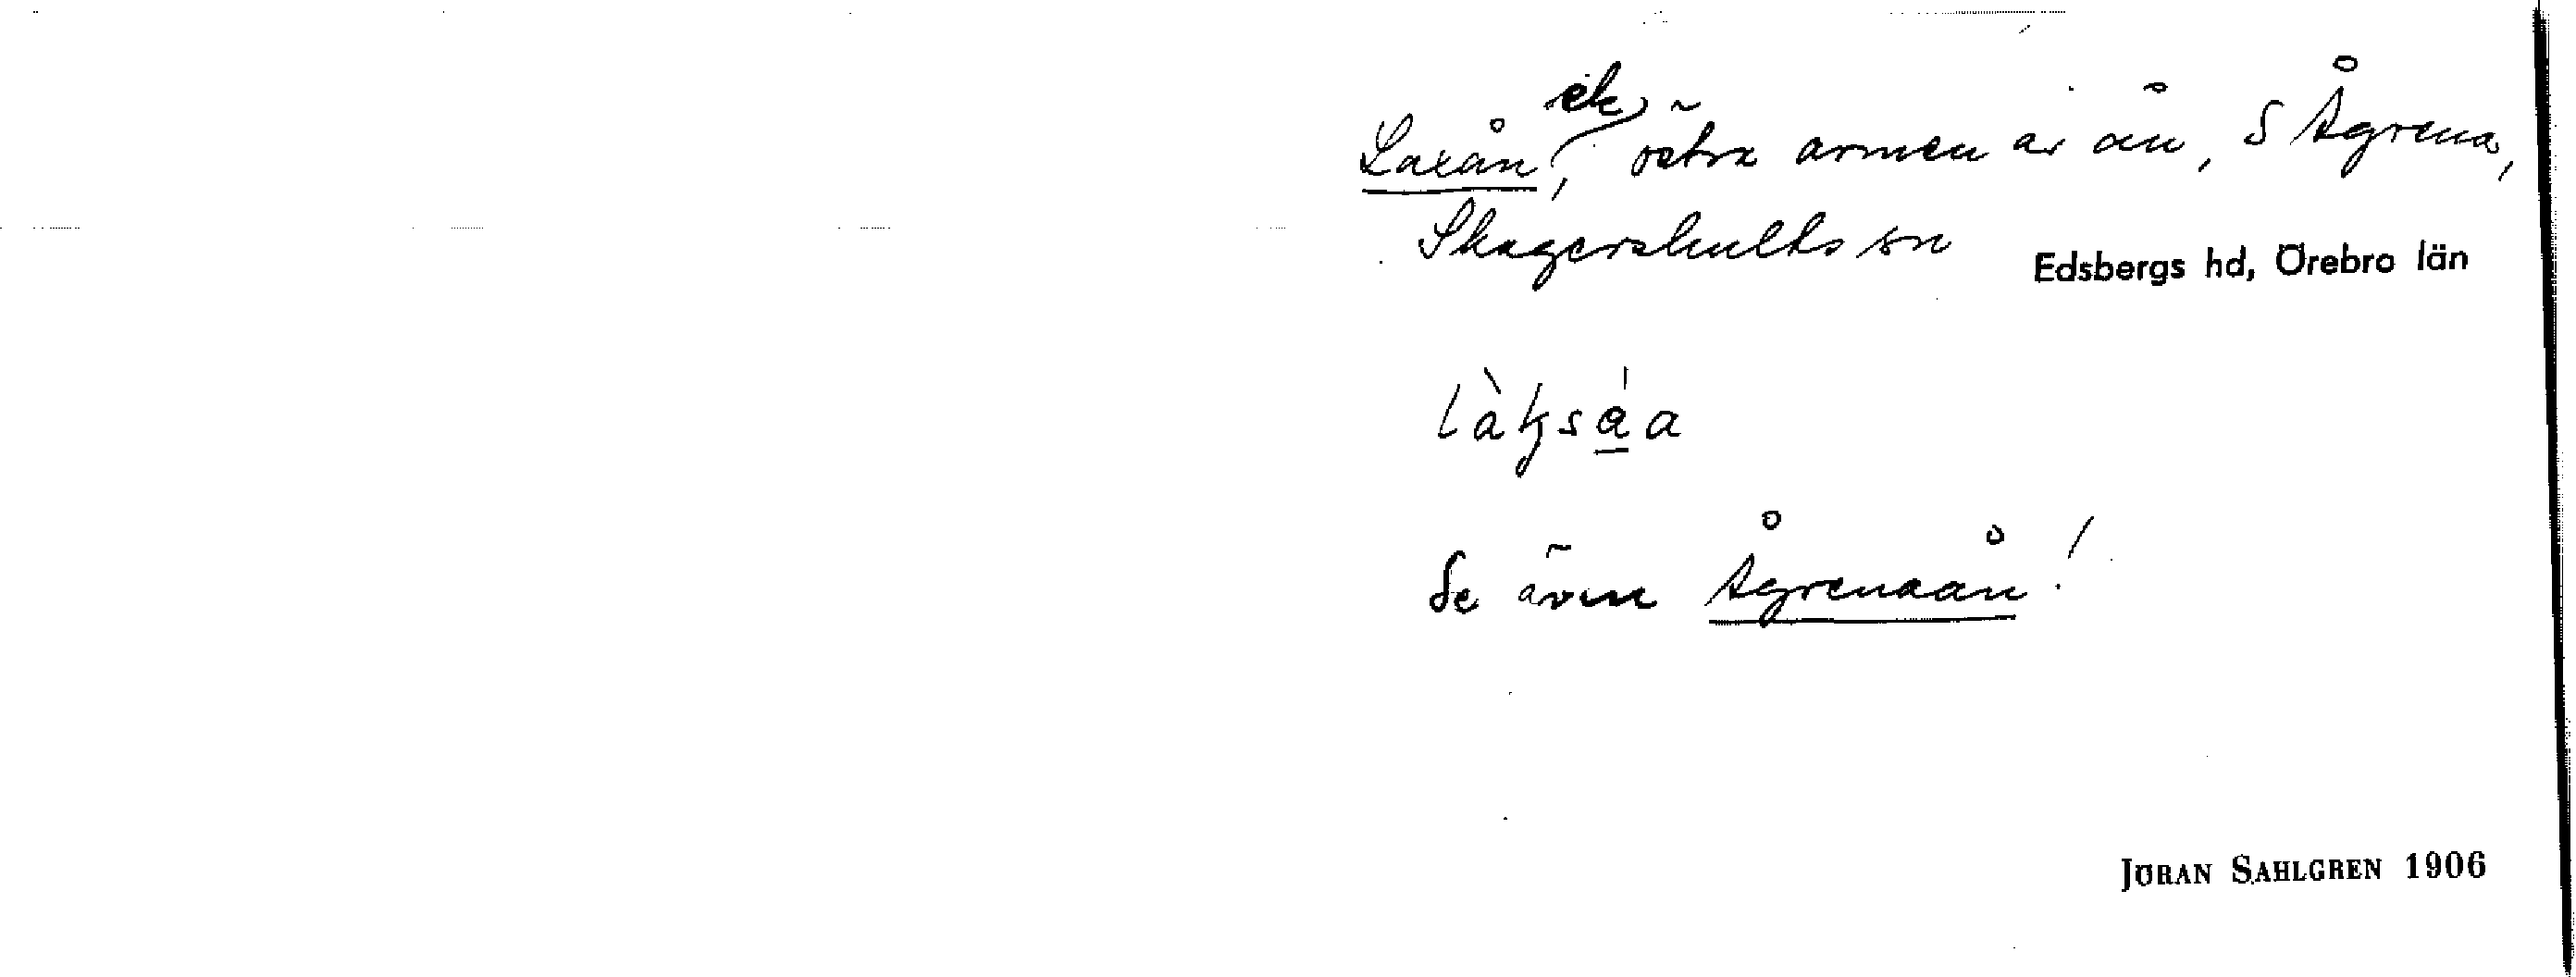 Laxån, ek, östra armen av ån, S Ågrena,
Skagershults sn Edsbergs hd, Örebro län
làksa̱ ́a
Se även Ågrenaån!
JÖRAN SAHLGREN 1906